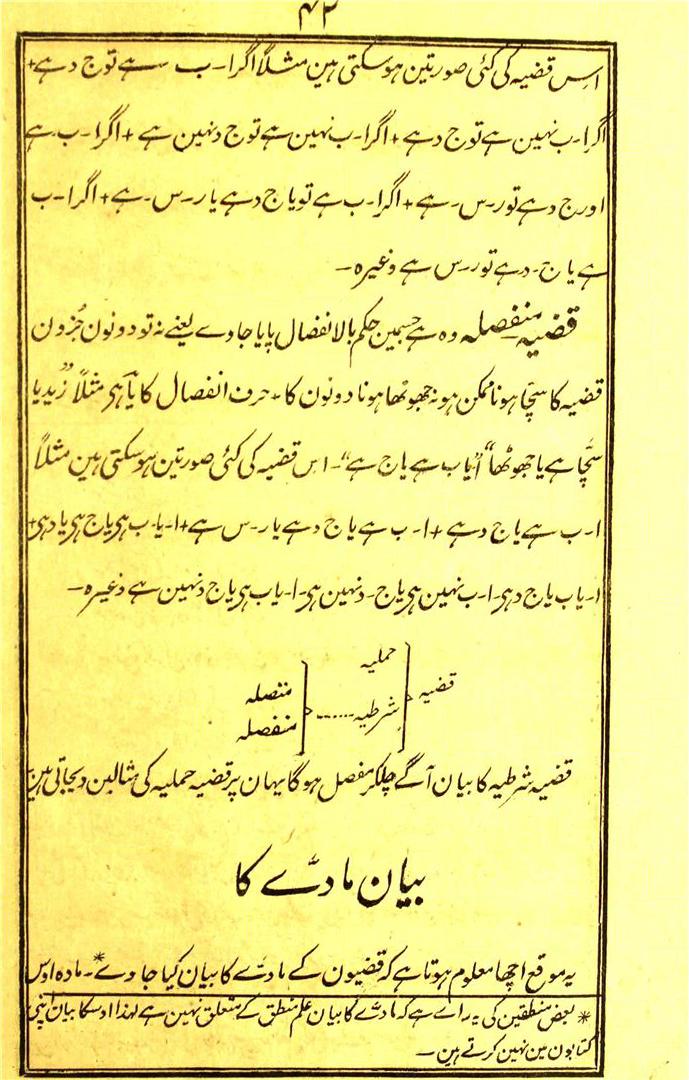 ۴۲
اِس قضیہ کی کئی صورتین ہوسکتی ہین مثلاً اگر ا۔ ب ہے تو ج د ہے+
اگر ا۔ ب نہین ہے تو ج د ہے + اگر ا۔ ب نہین ہے تو ج د نہین ہے + اگر ا۔ ب۔ ہے
اور ج د ہے تو ر۔ س۔ ہے + اگر ا۔ ب ہے تو یا ج د ہے یا ر۔ س۔ ہے + اگر ا۔ ب
ہے یا ج۔ د ہے تو ر۔ س ہے وغیرہ۔
قضیہ منفصلہ وہ ہے جسمین حکم بالانفصال پایا جاوے یعنے نہ تو دونون جُزون
قضیہ کا سچّا ہونا ممکن ہو نہ جھوٹھا ہونا دونون کا۔ حرف انفصال کا یا ہی مثلاً "زید یا
سچّا ہے یا جھوٹھا" "ا یا ب ہے یا ج ہے"۔ اس قضیہ کی کئی صورتین ہوسکتی ہین مثلاً
ا۔ ب ہے یا ج د ہے + ا۔ ب ہے یا ج د ہے یا ر۔ س ہے + ا۔ یا۔ ب ہی یا ج ہی یا د ہی+
ا۔ یا ب یا ج د ہی۔ ا۔ ب نہین ہی یا ج۔ د نہین ہی۔ ا۔ یا ب ہی یا ج د نہین ہے وغیرہ۔
حملیہ
قضیہ
شرطیہ......
متصلہ
منفصلہ
قضیہ شرطیہ کا بیان آگے چلکر مفصل ہوگا یہان پر قضیہ حملیہ کی مثالین دیجاتی ہین
بیان مادّے کا
یہ موقع اچھا معلوم ہوتا ہے کہ قضیون کے مادّے کا بیان کیا جاوے*۔ مادہ اوس
* بعض منطقین کی یہ راے ہے کہ مادّے کا بیان علم منطق کے متعلق نہین ہے لہذا اوسکا بیان اپنی
کتابون مین نہین کرتے ہین۔